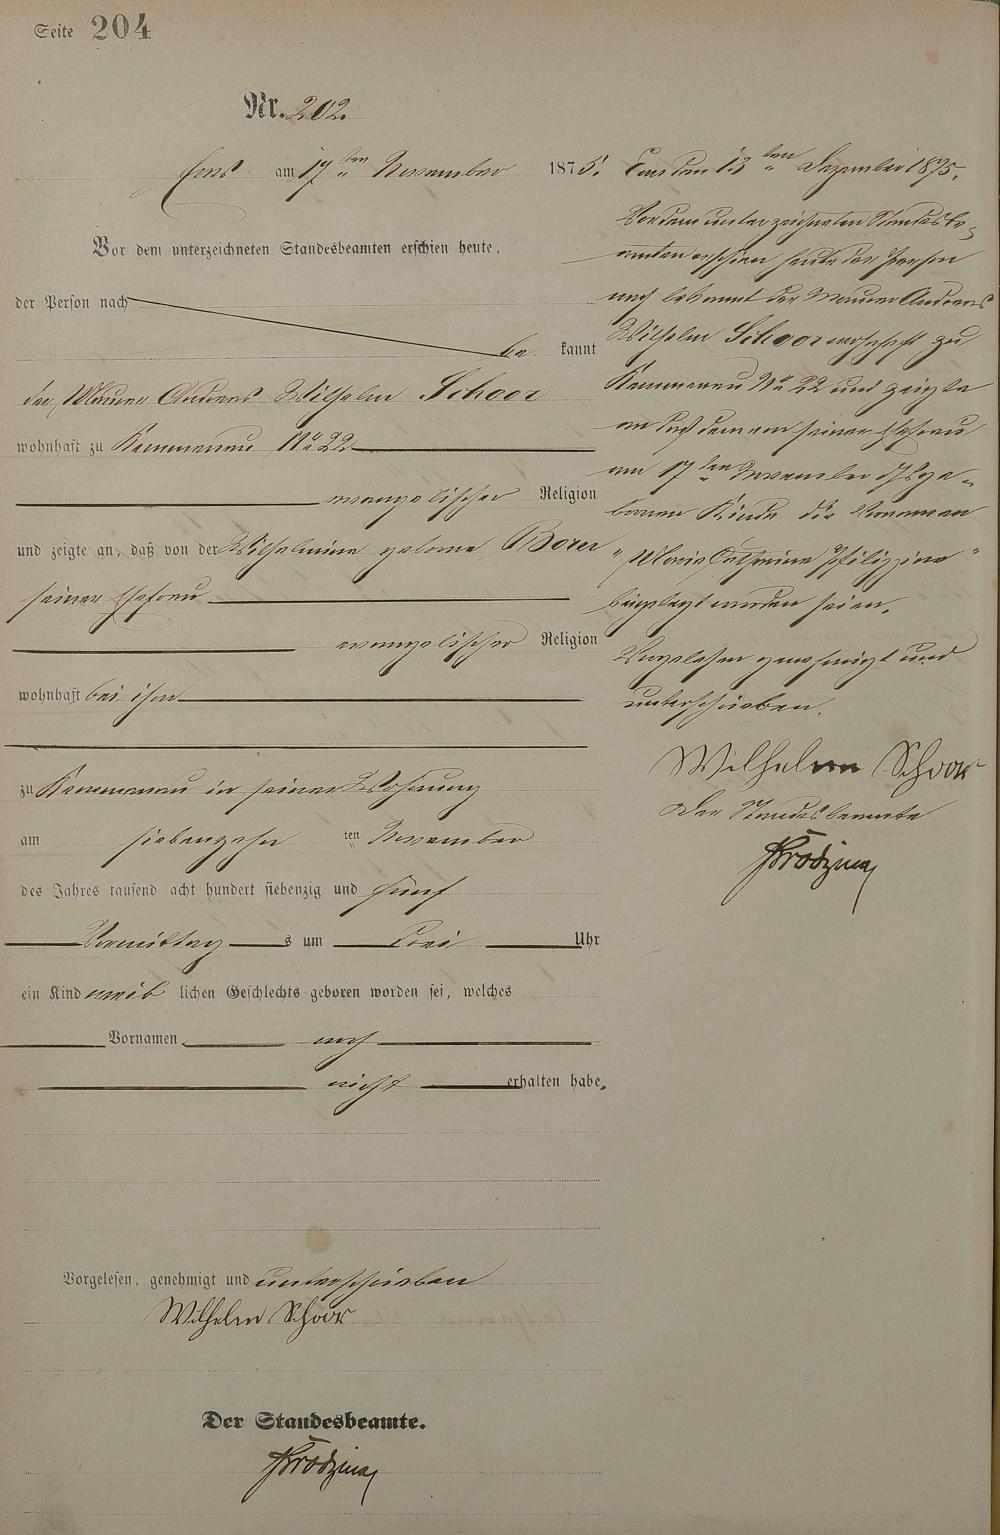 Seite 204
Nr. 202.
Ems am 17ten November 1875.
Vor dem unterzeichneten Standesbeamten erschien heute,
der Person nach
be kannt
der Maurer Andreas Wilhelm Schoor
wohnhaft zu Kemmenau No 22
evangelischer Religion
und zeigte an, daß von der Wilhelmine geborne Borer
seiner Ehefrau
evangelischer Religion
wohnhaft bei ihm
zu Kemmenau in seiner Wohnung
am siebenzehn ten November
des Jahres tausend acht hundert siebenzig und fünf
Vormittag s um drei Uhr
ein Kind weib lichen Geschlechts geboren worden sei, welches
Vornamen noch
nicht erhalten habe.
Vorgelesen, genehmigt und unterschrieben
Wilhelm Schoor
Der Standesbeamte.
Ems den 13ten Dezember 1875.
Vor dem unterzeichneten Standesbe-
amten erschien heute der Person
nach bekannt der Maurer Andreas
Wilhelm Schoor wohnhaft zu
Kemmenau No 22 und zeigte
an daß dem von seiner Ehefrau
am 17ten November ds ge-
bornen Kinde die Vornamen
"Marie Catharine Philippine"
beigelegt worden seien.
Vorgelesen genehmigt und
unterschrieben.
Wilhelm Schoor
Der Standesbeamte